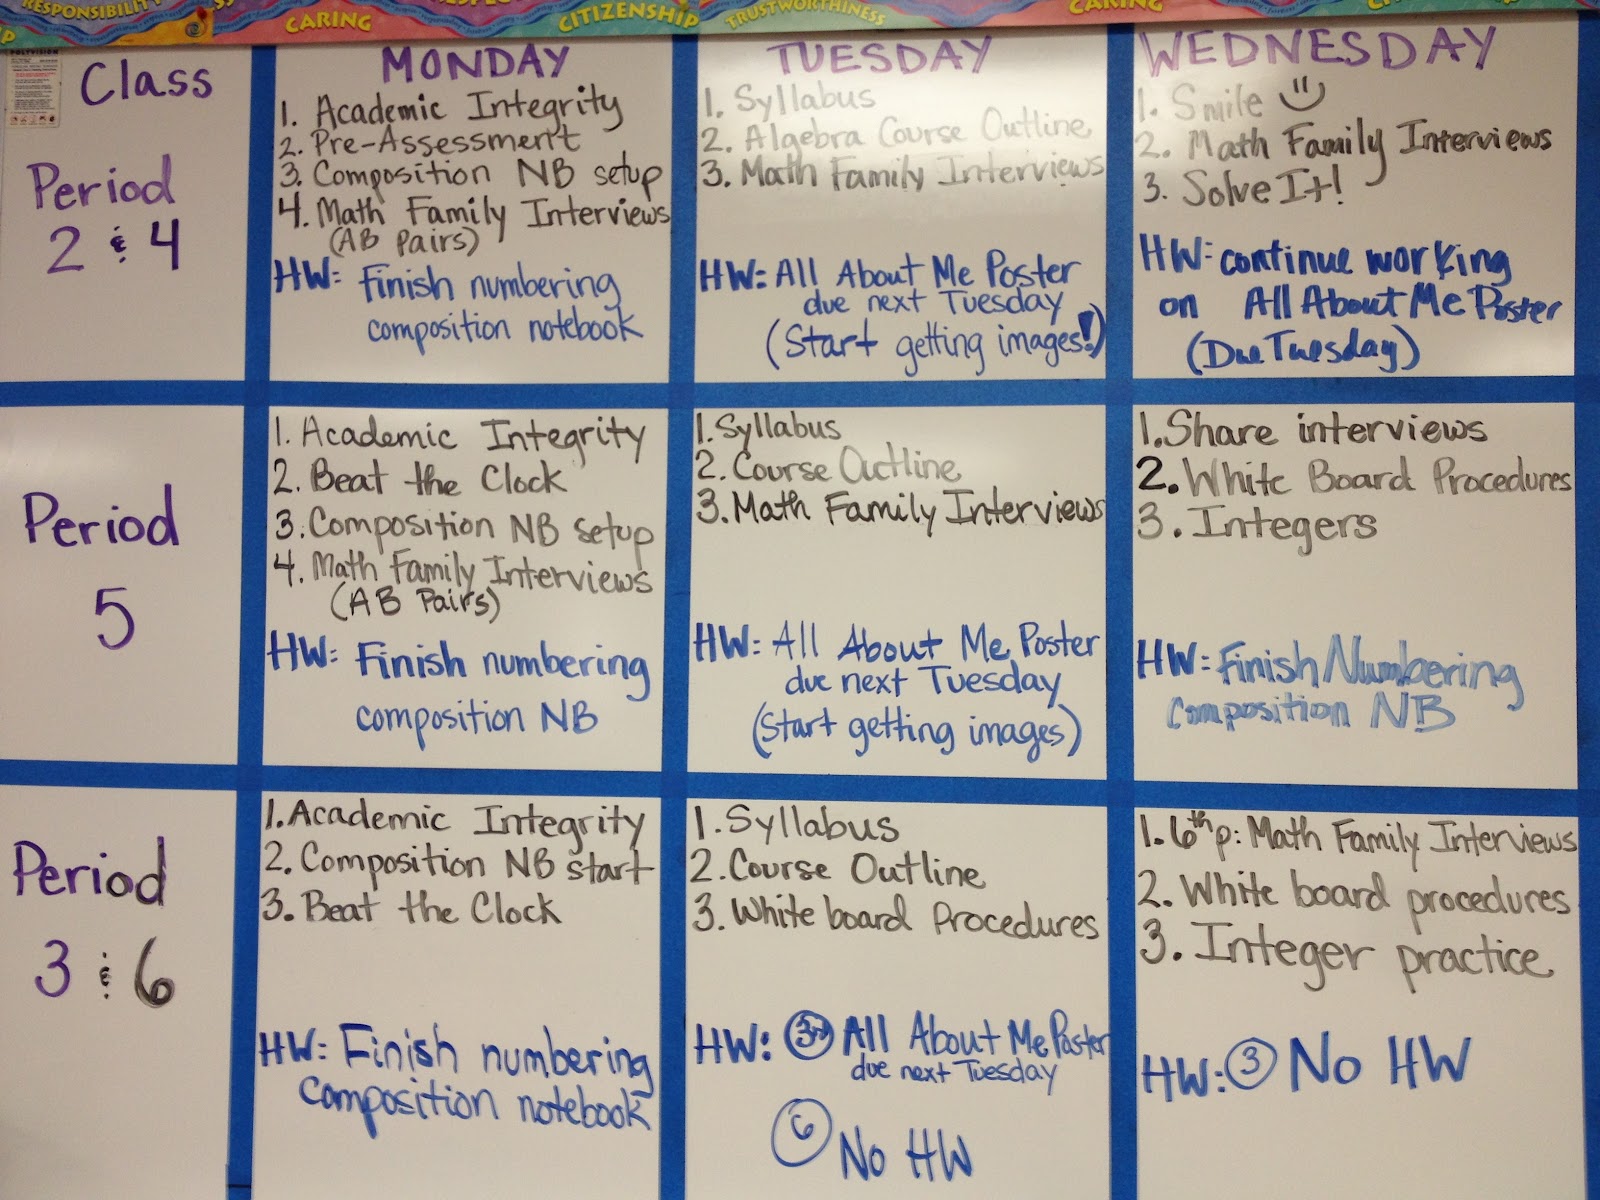 RESPONSIBILITY
CARING
CITIZENSHIP
TRUSTWORTHINESS
CARING
Class
MONDAY
TUESDAY
WEDNESDAY
Period
2 & 4
1. Academic Integrity
2. Pre-Assessment
3. Composition NB setup
4. Math Family Interviews
(AB Pairs)
HW: Finish numbering
composition notebook
1. Syllabus
2. Algebra Course Outline
3. Math Family Interviews
HW: All About Me Poster
due next Tuesday
(Start getting images!)
1. Smile
2. Math Family Interviews
3. Solve It!
HW: continue working
on All About Me Poster
(Due Tuesday)
Period
5
1. Academic Integrity
2. Beat the Clock
3. Composition NB setup
4. Math Family Interviews
(AB Pairs)
HW: Finish numbering
composition NB
1. Syllabus
2. Course Outline
3. Math Family Interviews
HW: All About Me Poster
due next Tuesday
(Start getting images)
1. Share interviews
2. White Board Procedures
3. Integers
HW: Finish Numbering
Composition NB
Period
3 & 6
1. Academic Integrity
2. Composition NB start
3. Beat the Clock
HW: Finish numbering
composition notebook
1. Syllabus
2. Course Outline
3. White board Procedures
HW: 3 All About Me Poster
due next Tuesday
6 No HW
1. 6th p: Math Family Interviews
2. White board procedures
3. Integer practice
HW: 3 No HW